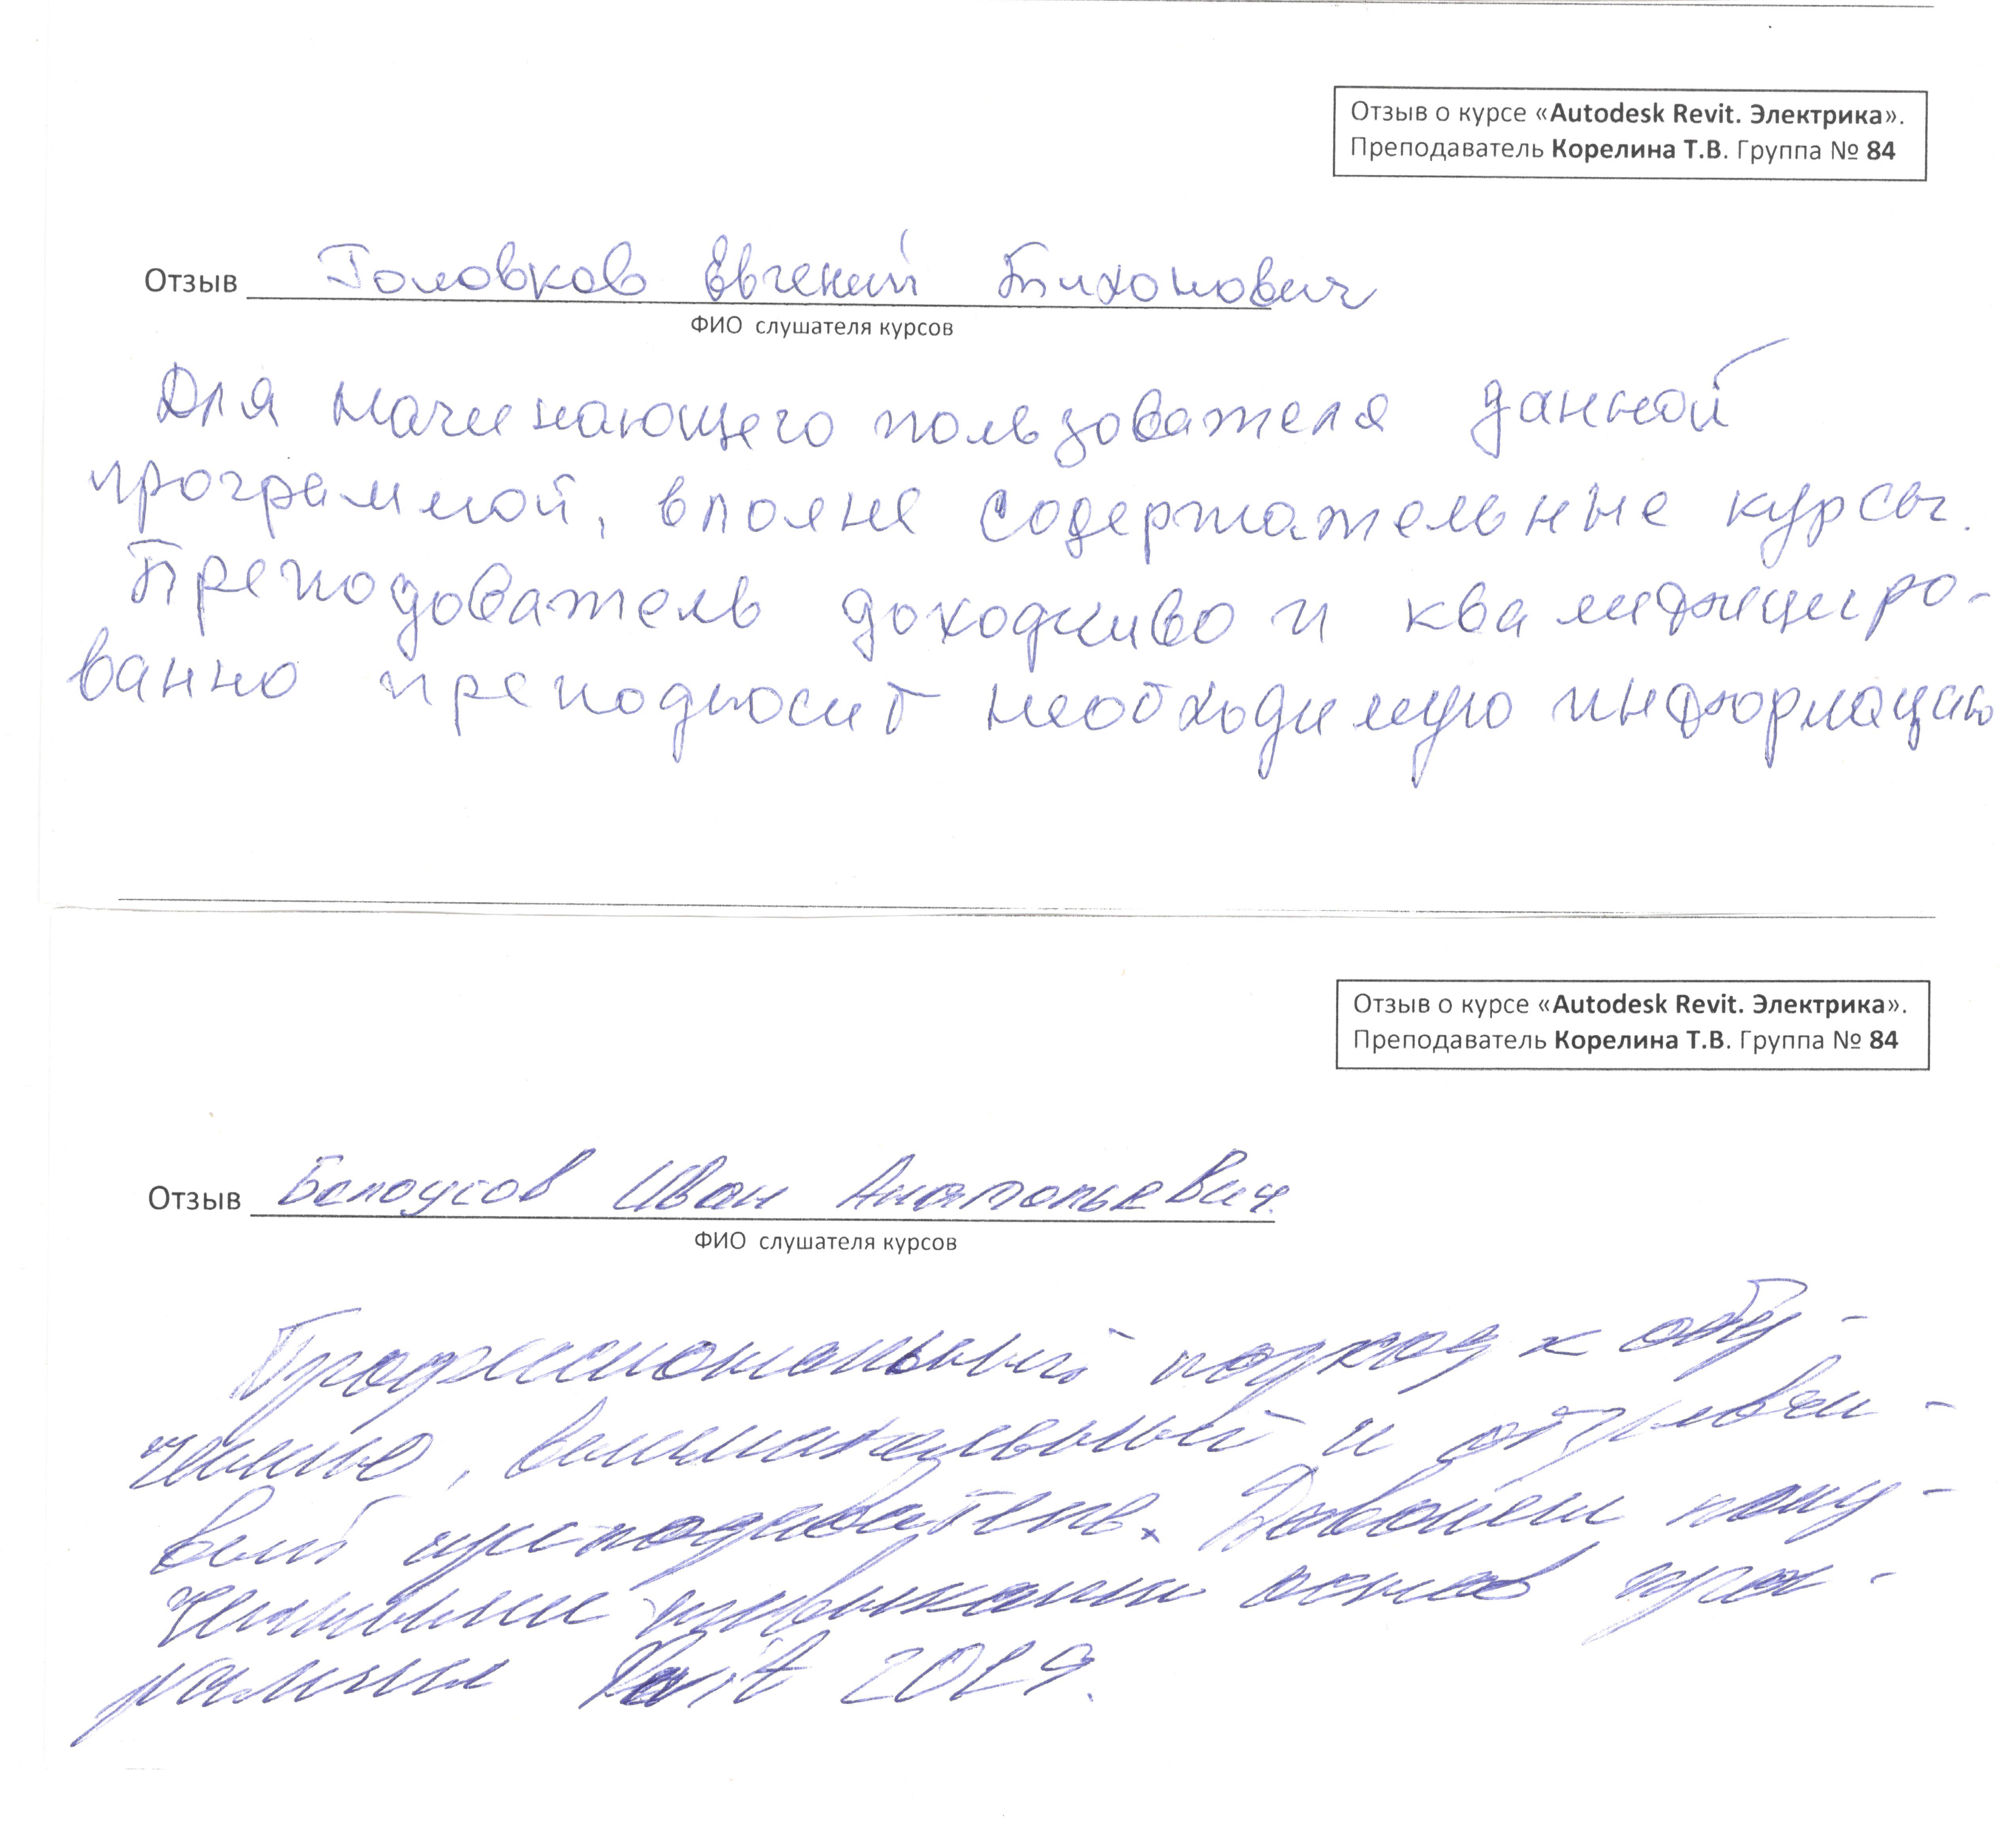 Отзыв о курсе «Autodesk Revit. Электрика».
Преподаватель Корелина Т.В. Группа № 84
Отзыв Головков Евгений Тихонович
ФИО слушателя курсов
Для начинающего пользователя данной
программой, вполне содержательные курсы.
Преподователь доходчиво и квалифициро-
ванно преподносит необходимую информацию
Отзыв о курсе «Autodesk Revit. Электрика».
Преподаватель Корелина Т.В. Группа № 84
Отзыв Белоусов Иван Анатольевич.
ФИО слушателя курсов
Профессиональный подход к обу-
чению, внимательный и отзывчи-
вый преподаватель. Доволен полу-
ченными навыками основ прог-
раммы Revit 2019.